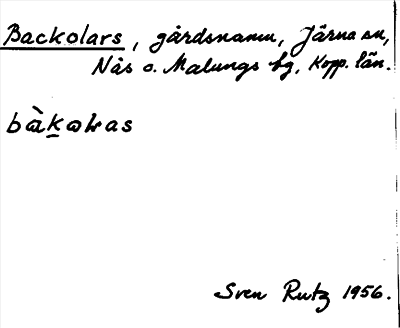 Backolars, gårdsnamn, Järna sn,
Nås o. Malungs tg, Kopp. län.
Sven Rutz 1956.